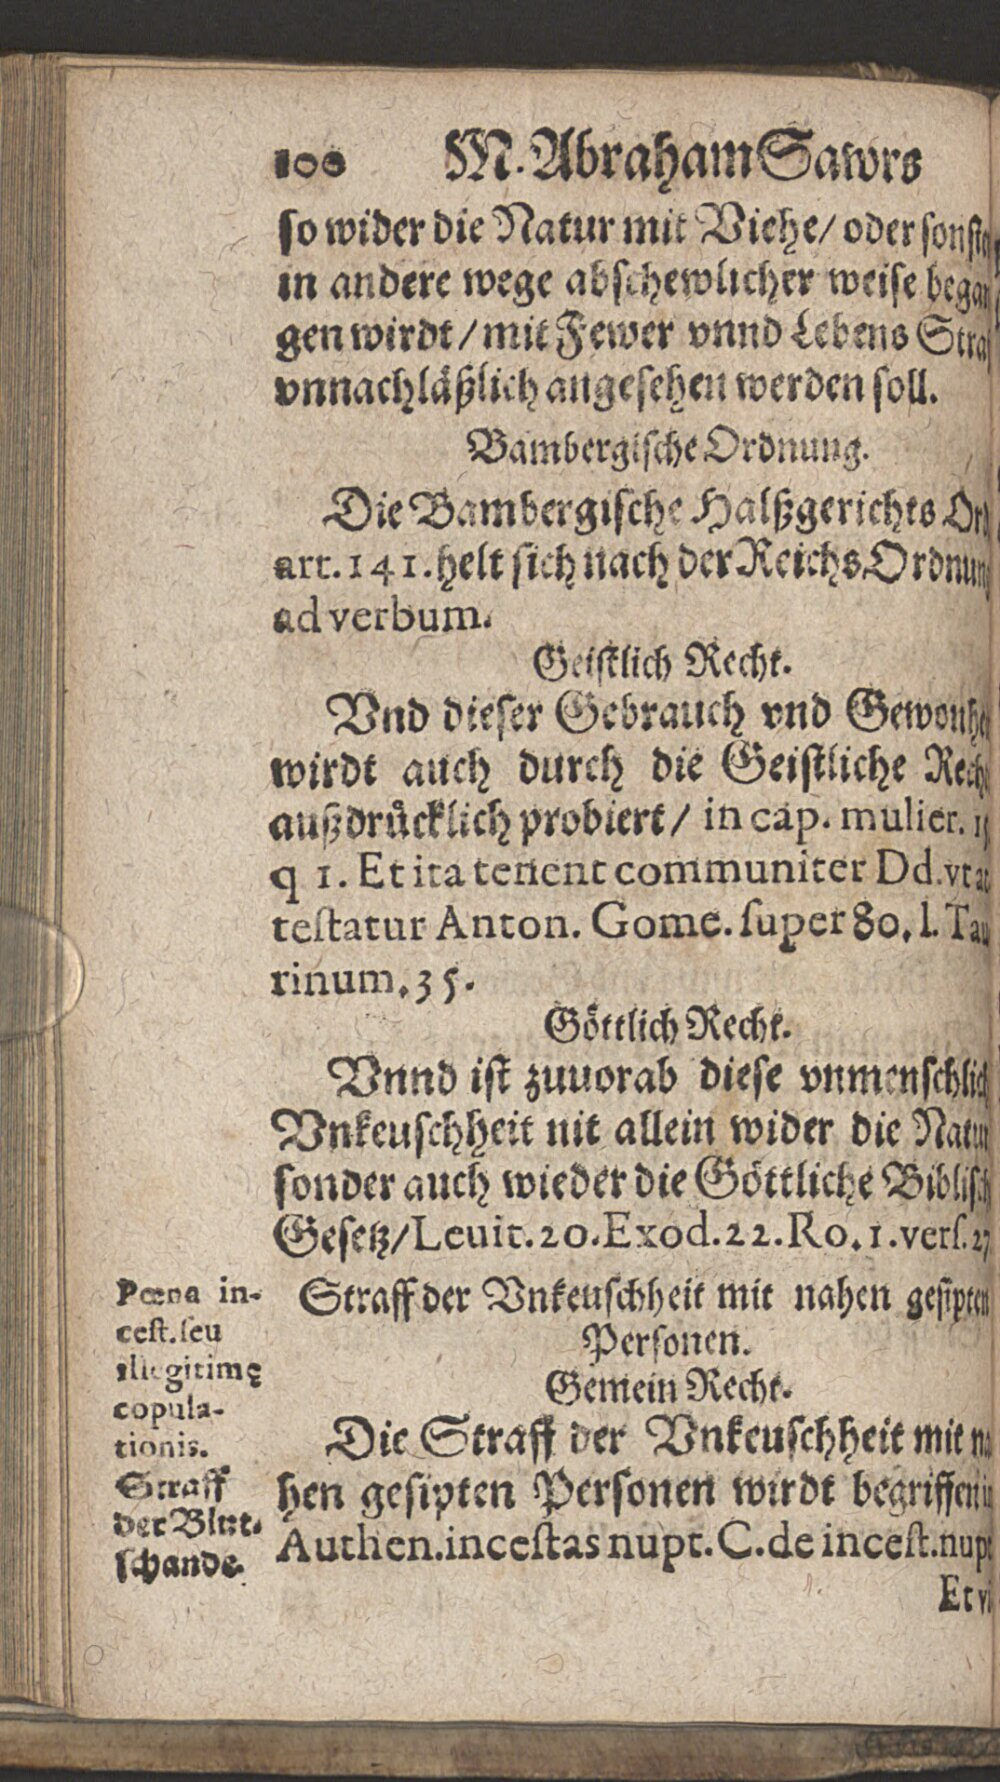 100 M. Abraham Sawrs
so wider die Natur mit Viehe/ oder sonste
in andere wege abschewlicher weise began
gen wirdt/ mit Fewer vnnd Lebens Straf
vnnachläßlich angesehen werden soll.
Bambergische Ordnung.
Die Bambergische Halßgerichts Ord
art. 141. helt sich nach der Reichs Ordnung
ad verbum.
Geistlich Recht.
Vnd dieser Gebrauch vnd Gewonhe
wirdt auch durch die Geistliche Recht
außdrücklich probiert/ in cap. mulier. 15
q 1. Et ita tenent communiter Dd. vt at
testatur Anton. Gome. super 80. l. Tau
rinum. 35.
Göttlich Recht.
Vnnd ist zuuorab diese vnmenschlich
Vnkeuschheit nit allein wider die Natur
sonder auch wieder die Göttliche Biblisch
Gesetz/ Leuit. 20. Exod. 22. Ro. 1. vers. 27
Straff der Vnkeuschheit mit nahen gesipten
Personen.
Gemein Recht.
Die Straff der Vnkeuschheit mit na
hen gesipten Personen wirdt begriffen in
Authen. incestas nupt. C. de incest. nupt
Et vi
Pœna in-
cest. seu
illegitimę
copula-
tionis.
Straff
der Blut-
schande.